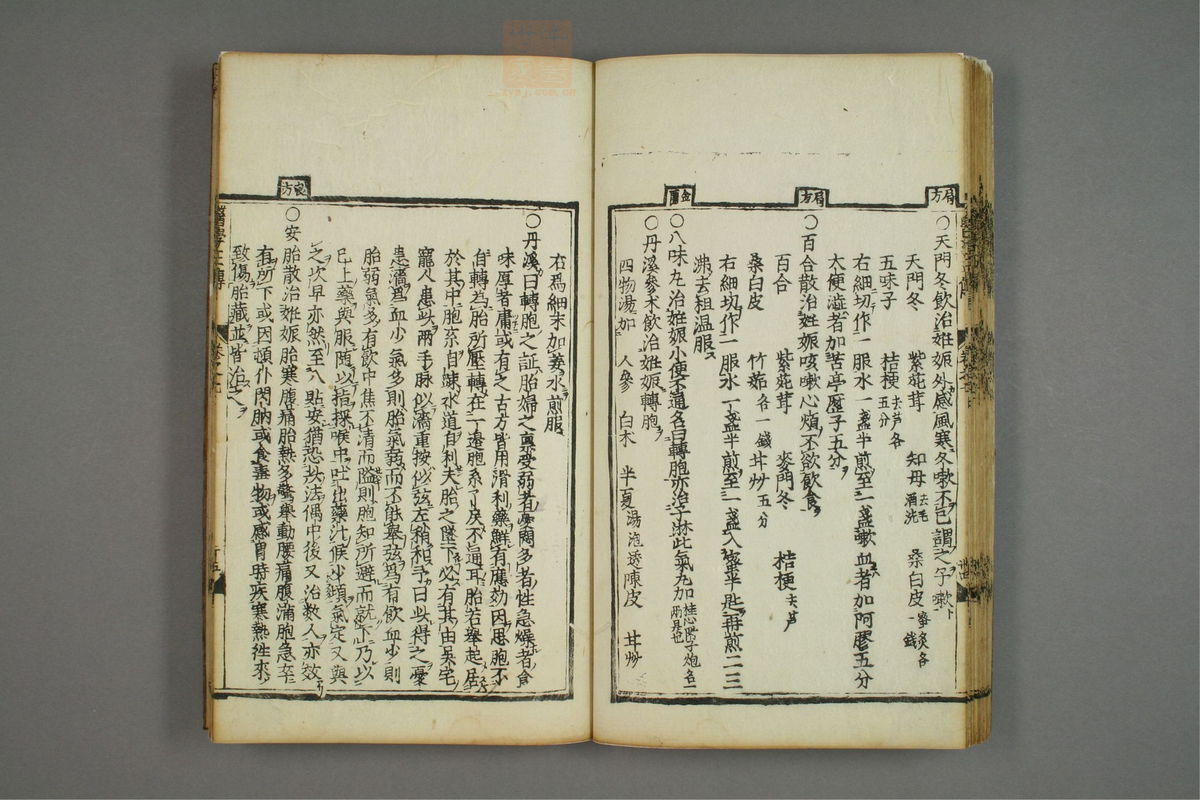 局方
○天門冬飲治姙娠外感風寒冬嗽不已謂之子嗽
天門冬 紫菀茸 知母去毛酒洗 桑白皮蜜炙各一錢
五味子 桔梗去芦各五分
右細切作一服水一盞半煎至一盞嗽血者加阿膠五分
大便澁者加苦葶藶子五分
局方
○百合散治姙娠咳嗽心煩不欲飲食
百合 紫菀茸 麥門冬 桔梗去芦
桑白皮 竹茹各一錢 甘艸五分
右細切作一服水一盞半煎至一盞入蜜半匙再煎二三
沸去柤温服
金匱
○八味丸治姙娠小便不通名曰轉胞亦治子淋此氣丸加桂心附子炮各一兩是也
○丹溪參朮飲治姙娠轉胞
四物湯加 人參 白朮 半夏湯泡透 陳皮 甘艸
右爲細末加姜水煎服
○丹溪曰轉胞之証胎婦之稟受弱者憂悶多者性急燥者食
味厚者庸或有之古方皆用滑利藥鮮有應効因思胞不
自轉為胎所壓轉在一邉胞系了戾不通耳胎若舉起居
於其中胞系自疎水道自利夫胎之墜下必有其由吳宅
寵人患此兩手脉似濇重按似弦左稍和予曰此得之憂
患濇爲血少氣多則胎氣弱而不能舉弦爲有飲血少則
胎弱氣多有飲中焦不清而隘則胞知所避而就下乃以
已上藥與服随以指探喉中吐出藥汁候少頃氣定又與
之次早亦然至八貼安猶恐此法偶中後又治數人亦效
良方
○安胎散治姙娠胎寒腹痛胎熱多驚舉動腰痛腹滿胞急卒
有所下或因頓仆閃肭或食毒物或感冒時疾寒熱徃來
致傷胎臟並皆治之